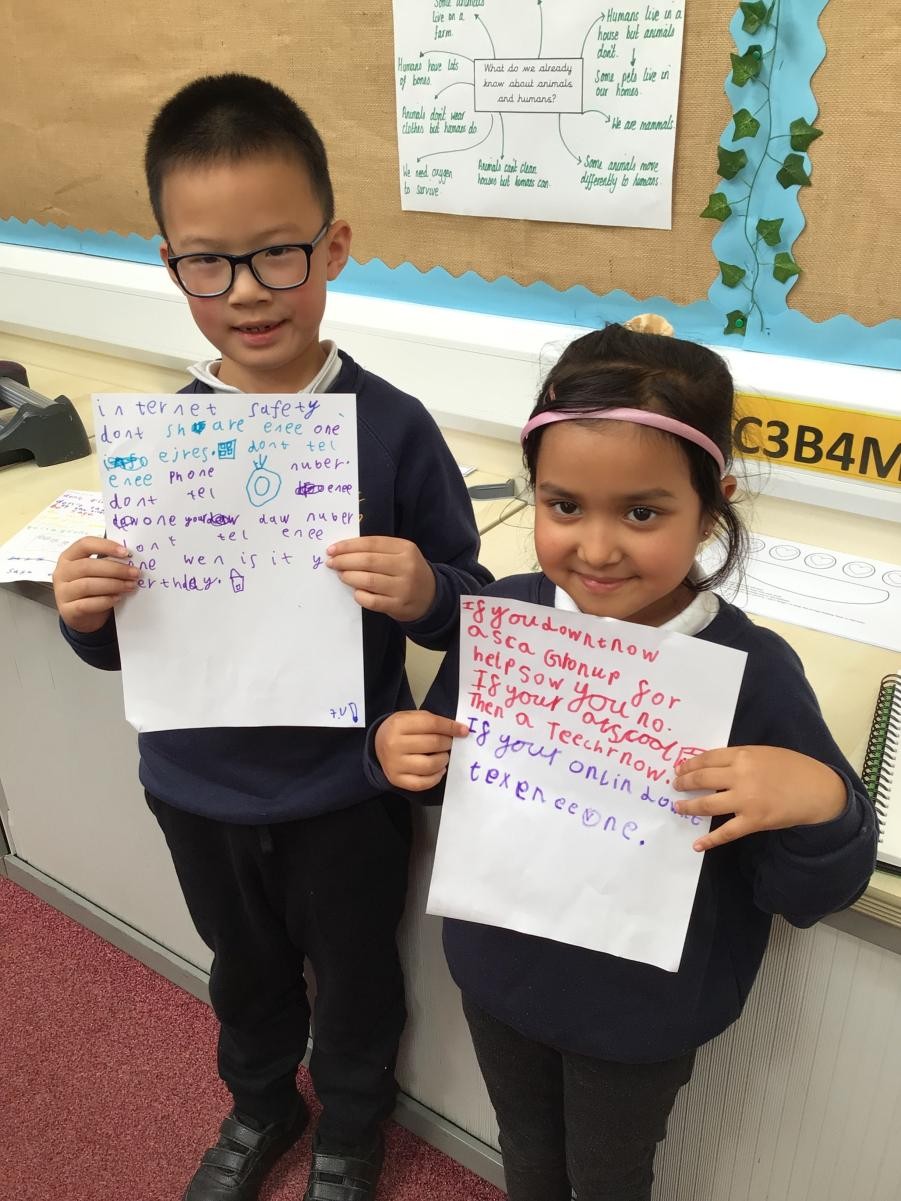 Some animals
live on a
farm.
Humans live in a
house but animals
don't.
Humans have lots
of bones.
What do we already
know about animals
and humans?
Some pets live in
our homes.
Animals don't wear
clothes but humans do
We are mammals
We need oxygen
to survive.
Animals can't clean
houses but humans can.
Some animals move
differently to humans.
C3B4M
internet safety
dont share enee one
ejres. dont tel
enee phone nuber.
dont tel enee
one your daw nuber
dont tel enee
one wen is it y
erthday.
If you down t now
asca Gronup for
help sow you no.
If your atscool
Then a Teechr now.
If your onlin downt
tex enee one.